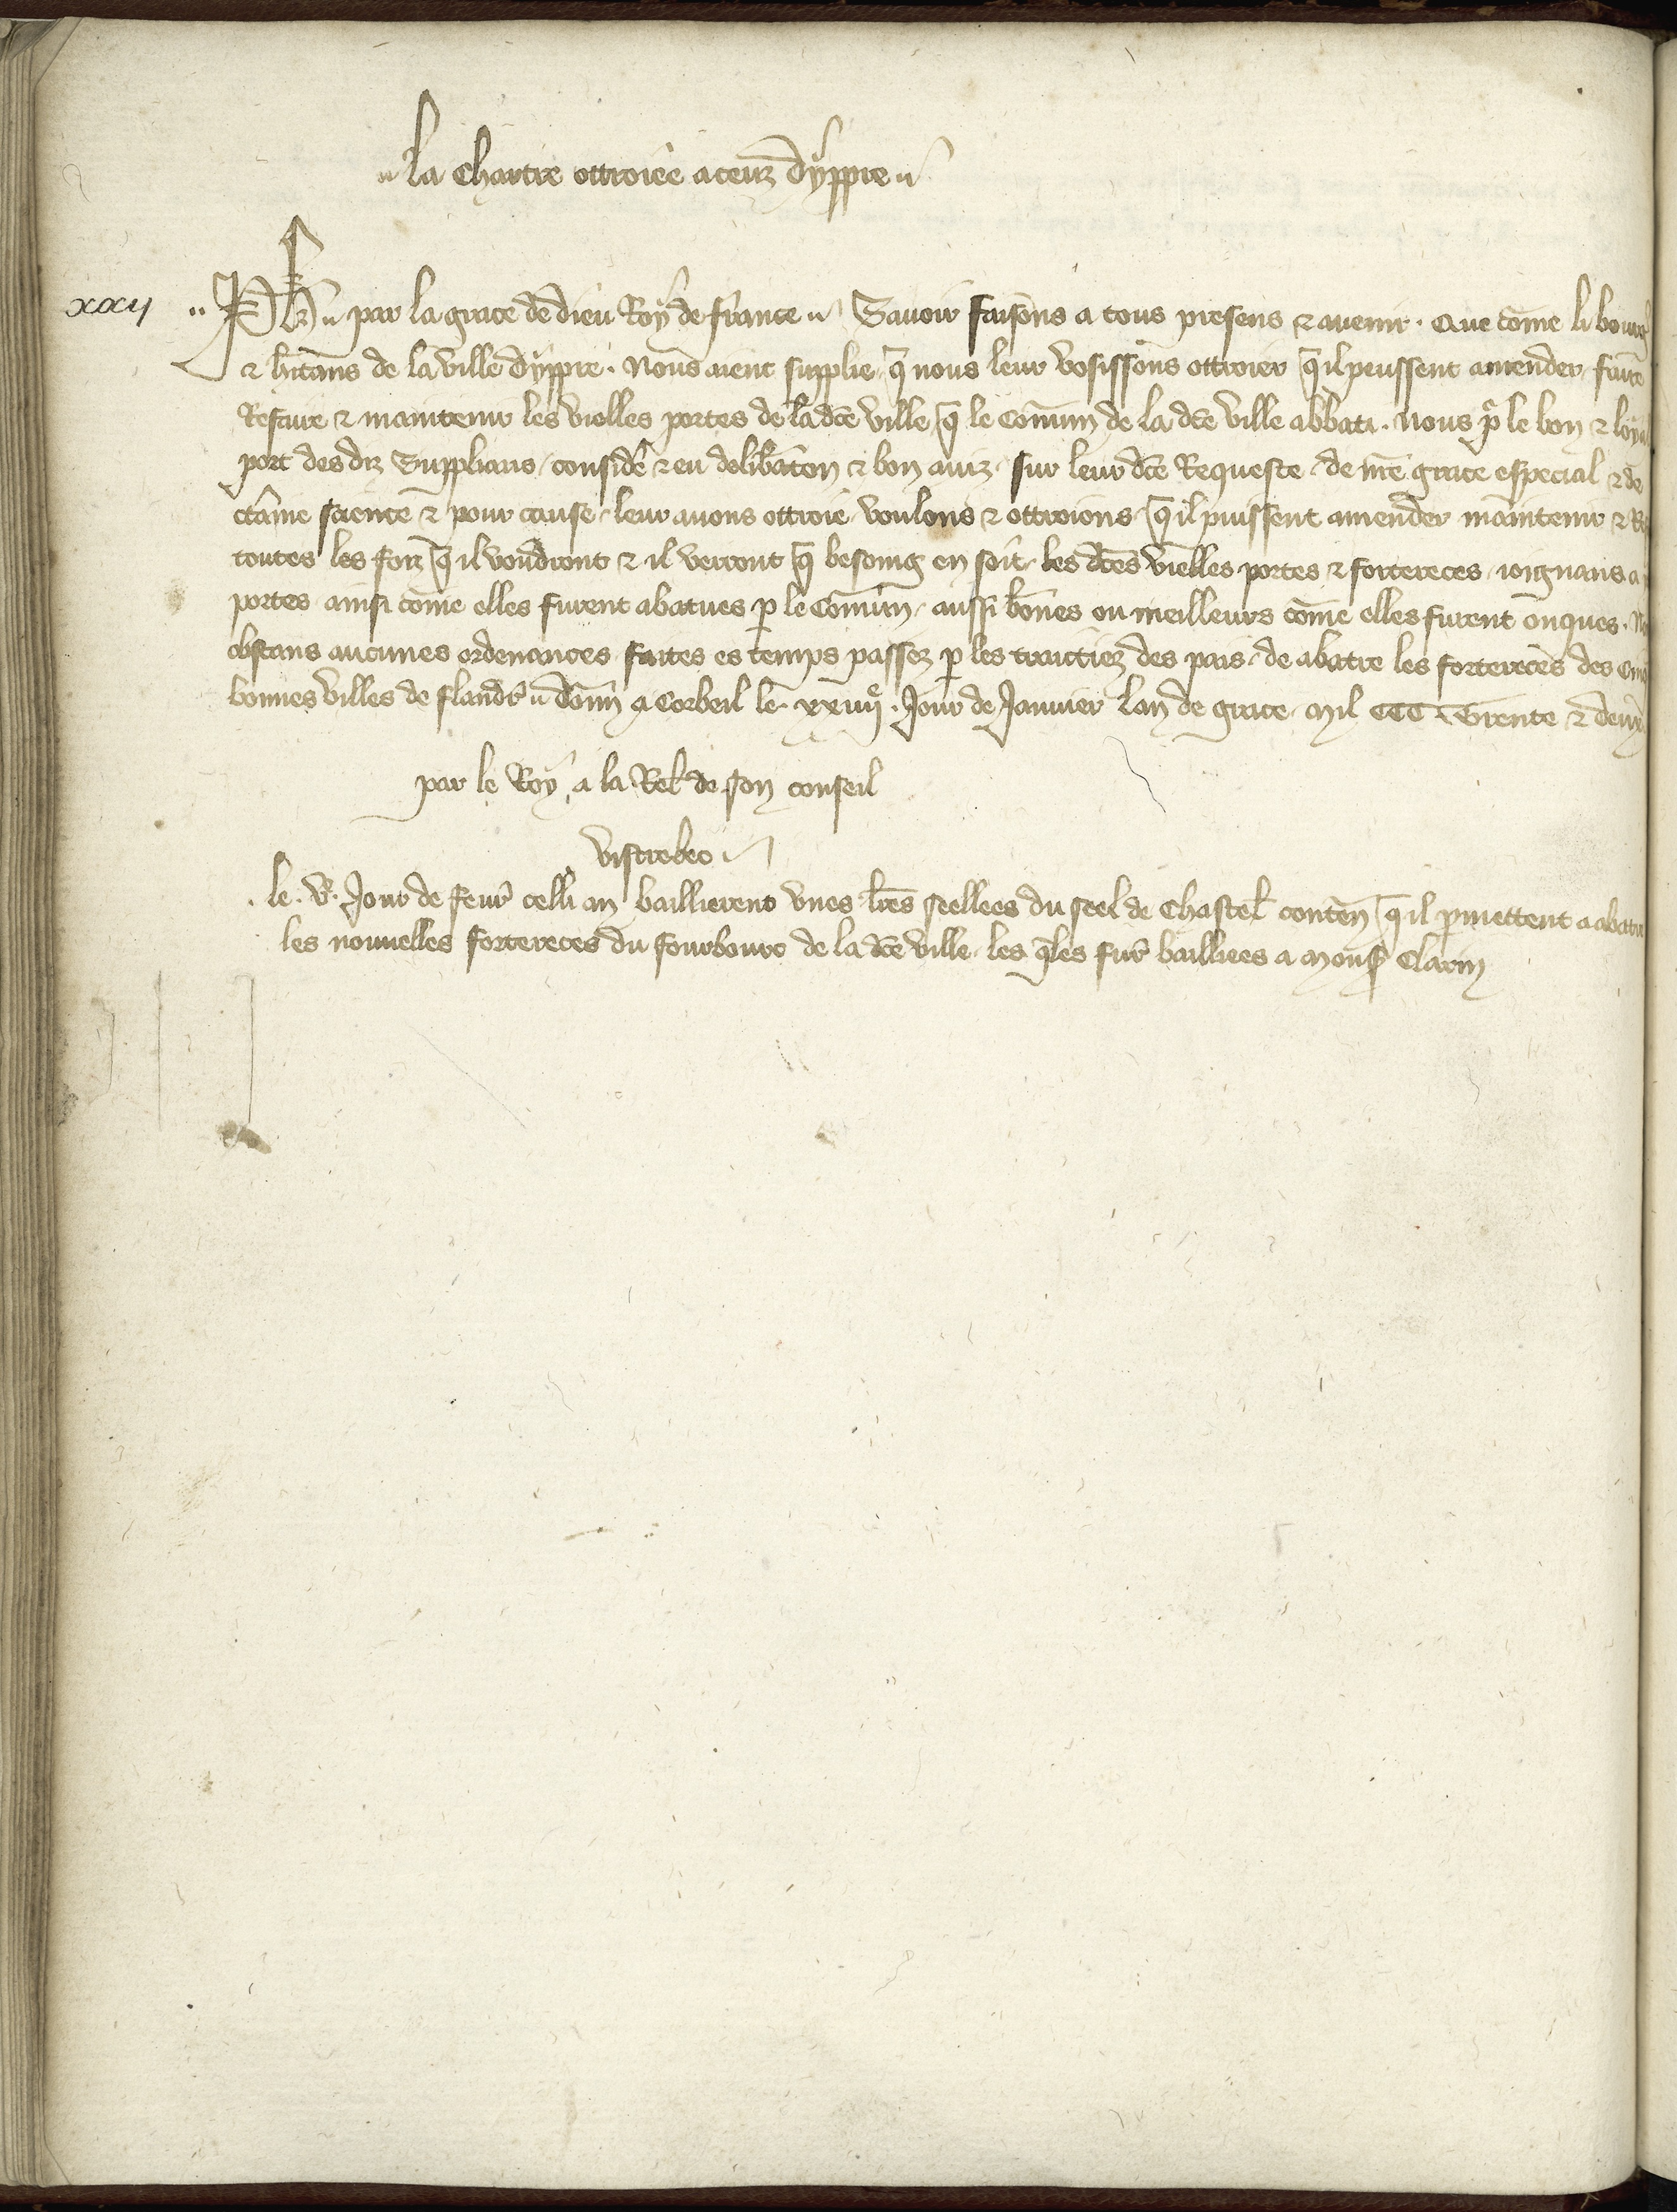 La Chartre ottroiee a ceulz dyppre
xxxij Ph par la grace de dieu Roy de france Savoir faisons a tous presens & avenir. Que come li bourg
& hitans de la ville dyppre. Nous aient supplie q̄ nous leur vosissons ottroier q̄il peussent amender faire
Refaire & maintenir les vielles portes de la dce ville q̄ le Comun de la dce ville abbati. Nous p̄ le bon & loyal
port des diz Supplians consideᷓ & eu delibaton & bon aviz sur leur dce Requeste de nre grace especial & de
ctaine science & pour cause leur avons ottroie voulons & ottroions q̄il puissent amender maintenir &
toutes les foiz q̄il voudront & il verront q̄ besoing en soit les dces vielles portes & fortereces ioignans a
portes ainsi come elles furent abatues p le Comun aussi bones ou meilleurs come elles furent onques.
obstans aucunes ordenances faites es temps passez p les traictiez des pais de abatre les fortereces des
bonnes villes de flandr donn a Corbeil le xxiiijᵉ. Jour de Janvier lan de grace Mil CCC Trente &
par le Roy a la Rel de son conseil
Vistrebec
le. v. Jour de fevr celli an baillierent unes lres seellees du seel de Chastel conten q̄il pmettent a abatre
les nouvelles fortereces du fourbourc de la dce ville les qles fur bailliees a mons Clarin